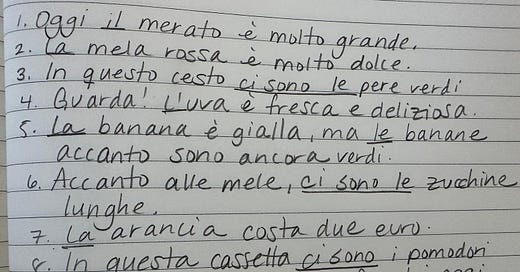 1. Oggi il merato è molto grande.
2. La mela rossa è molto dolce.
3. In questo cesto ci sono le pere verdi
4. Guarda! L'uva è fresca e deliziosa.
5. La banana è gialla, ma le banane
accanto sono ancora verdi.
6. Accanto alle mele, ci sono le zucchine
lunghe.
7. La arancia costa due euro.
8. In questa cassetta ci sono i pomodori